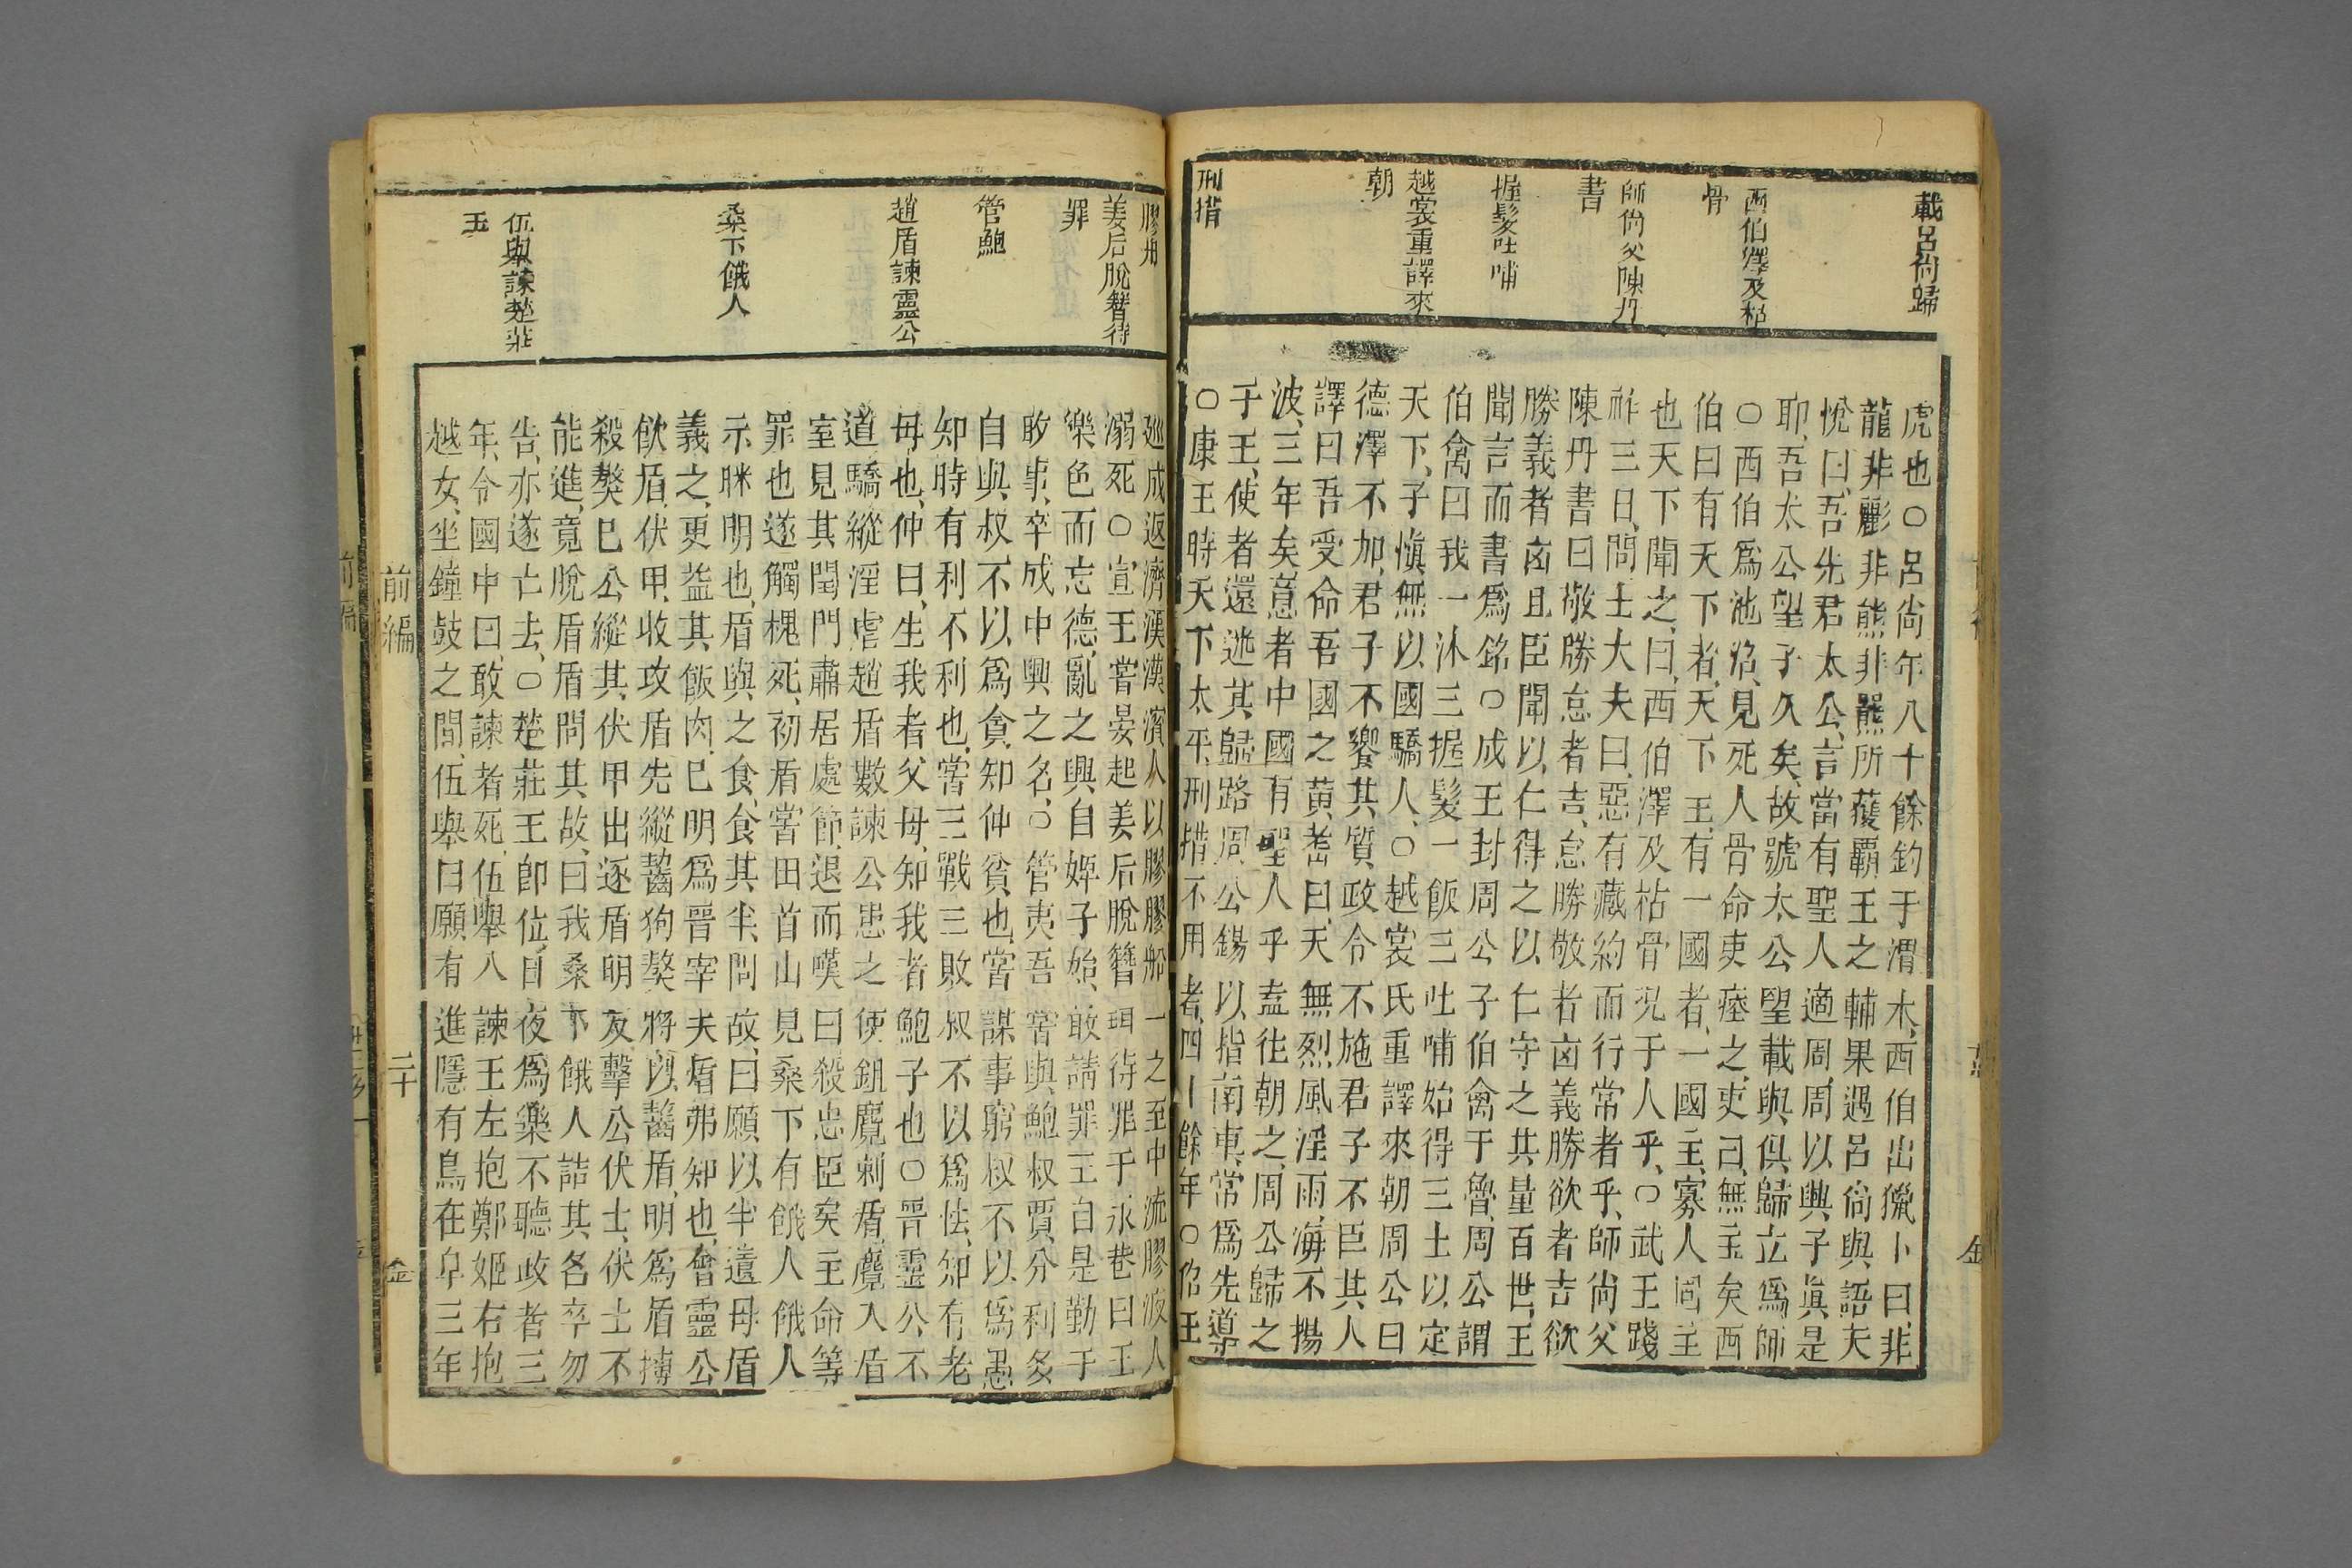 載呂尙歸
西伯澤及枯
骨
師尙父陳丹
書
握髮吐哺
越裳重譯來
朝
刑措
虎也〇呂尙年八十餘釣于渭水、西伯出獵卜曰、非
龍非彲非熊非羆所獲霸王之輔果遇呂尙與語大
悅曰、吾先君太公、言當有聖人適周、周以興、子眞是
耶、吾太公望子久矣、故號太公望載與俱歸立爲師
〇西伯爲池沼、見死人骨命吏瘞之、吏曰、無主矣西
伯曰有天下者、天下王、有一國者、一國主、寡人固主
也天下聞之、曰、西伯澤及祜骨况于人乎、〇武王踐
祚三日、問士大夫曰、惡有藏約而行常者乎、師尙父
陳丹書曰敬勝怠者吉、怠勝敬者凶義勝欲者吉欲
勝義者凶且臣聞以、仁得之以仁守之其量百世、王
聞言而書爲銘〇成王封周公子伯禽于魯、周公謂
伯禽曰我一沐三握髮一飯三吐哺始得三士以、定
天下、子愼無以國驕人、〇越裳氏重譯來朝周公曰
德澤不加、君子不饗其質政令不施君子不臣其人
譯曰吾受命吾國之黃耇曰、天無烈風淫雨、海不揚
波、三年矣意者中國有聖人乎盍往朝之、周公歸之
于王、使者還迷其歸路周公錫以指南車、常爲先導
〇康王時天下太平、刑措不用者、四十餘年〇佋王
膠舟
姜后脫簪待
罪
管鮑
趙盾諫靈公
桑下餓人
伍舉諫楚莊
王
廵成返濟漢漢濱人以膠膠船一之至中流膠液人
溺死〇宣王嘗晏起姜后脫簪珥待罪于永巷曰王
樂色而忘德、亂之興自婢子始、敢請罪王自是勤于
政事、卒成中興之名、〇管夷吾嘗與鮑叔賈、分利多
自與、叔不以爲貪、知仲貧、也嘗謀事窮叔不以爲愚
知時有利不利也、嘗三戰三敗叔不以爲怯、知有老
母也、仲曰、生我者父母、知我者鮑子也〇晉靈公、不
道驕縱淫虐趙盾數諫公患之使鉏麑刺盾、麑入盾
室見其閨門肅居處節、退而嘆曰殺忠臣矣主命等
罪也遂觸槐死、初盾嘗田首山見桑下有餓人餓人
示眯明也、盾與之食、食其半、問故、曰願以半遺母盾
義之、更益其飯肉、已明爲晉宰夫盾弗知也、會靈公
飮盾、伏甲、收攻盾先縱齧狗獒將以齧盾、明爲盾摶
殺獒巳公縱其伏甲出逐盾明友擊公伏士、伏士不
能進、竟脫盾盾問其故、曰我桑下餓人詰其名卒勿
告、亦遂亡去、〇楚莊王卽位、日夜爲樂不聽政者三
年、令國中曰、敢諫者死、伍舉八諫王、左抱鄭姬右抱
越女、坐鐘鼓之間、伍舉曰願有進隱有鳥在阜三年
前編
二十
金